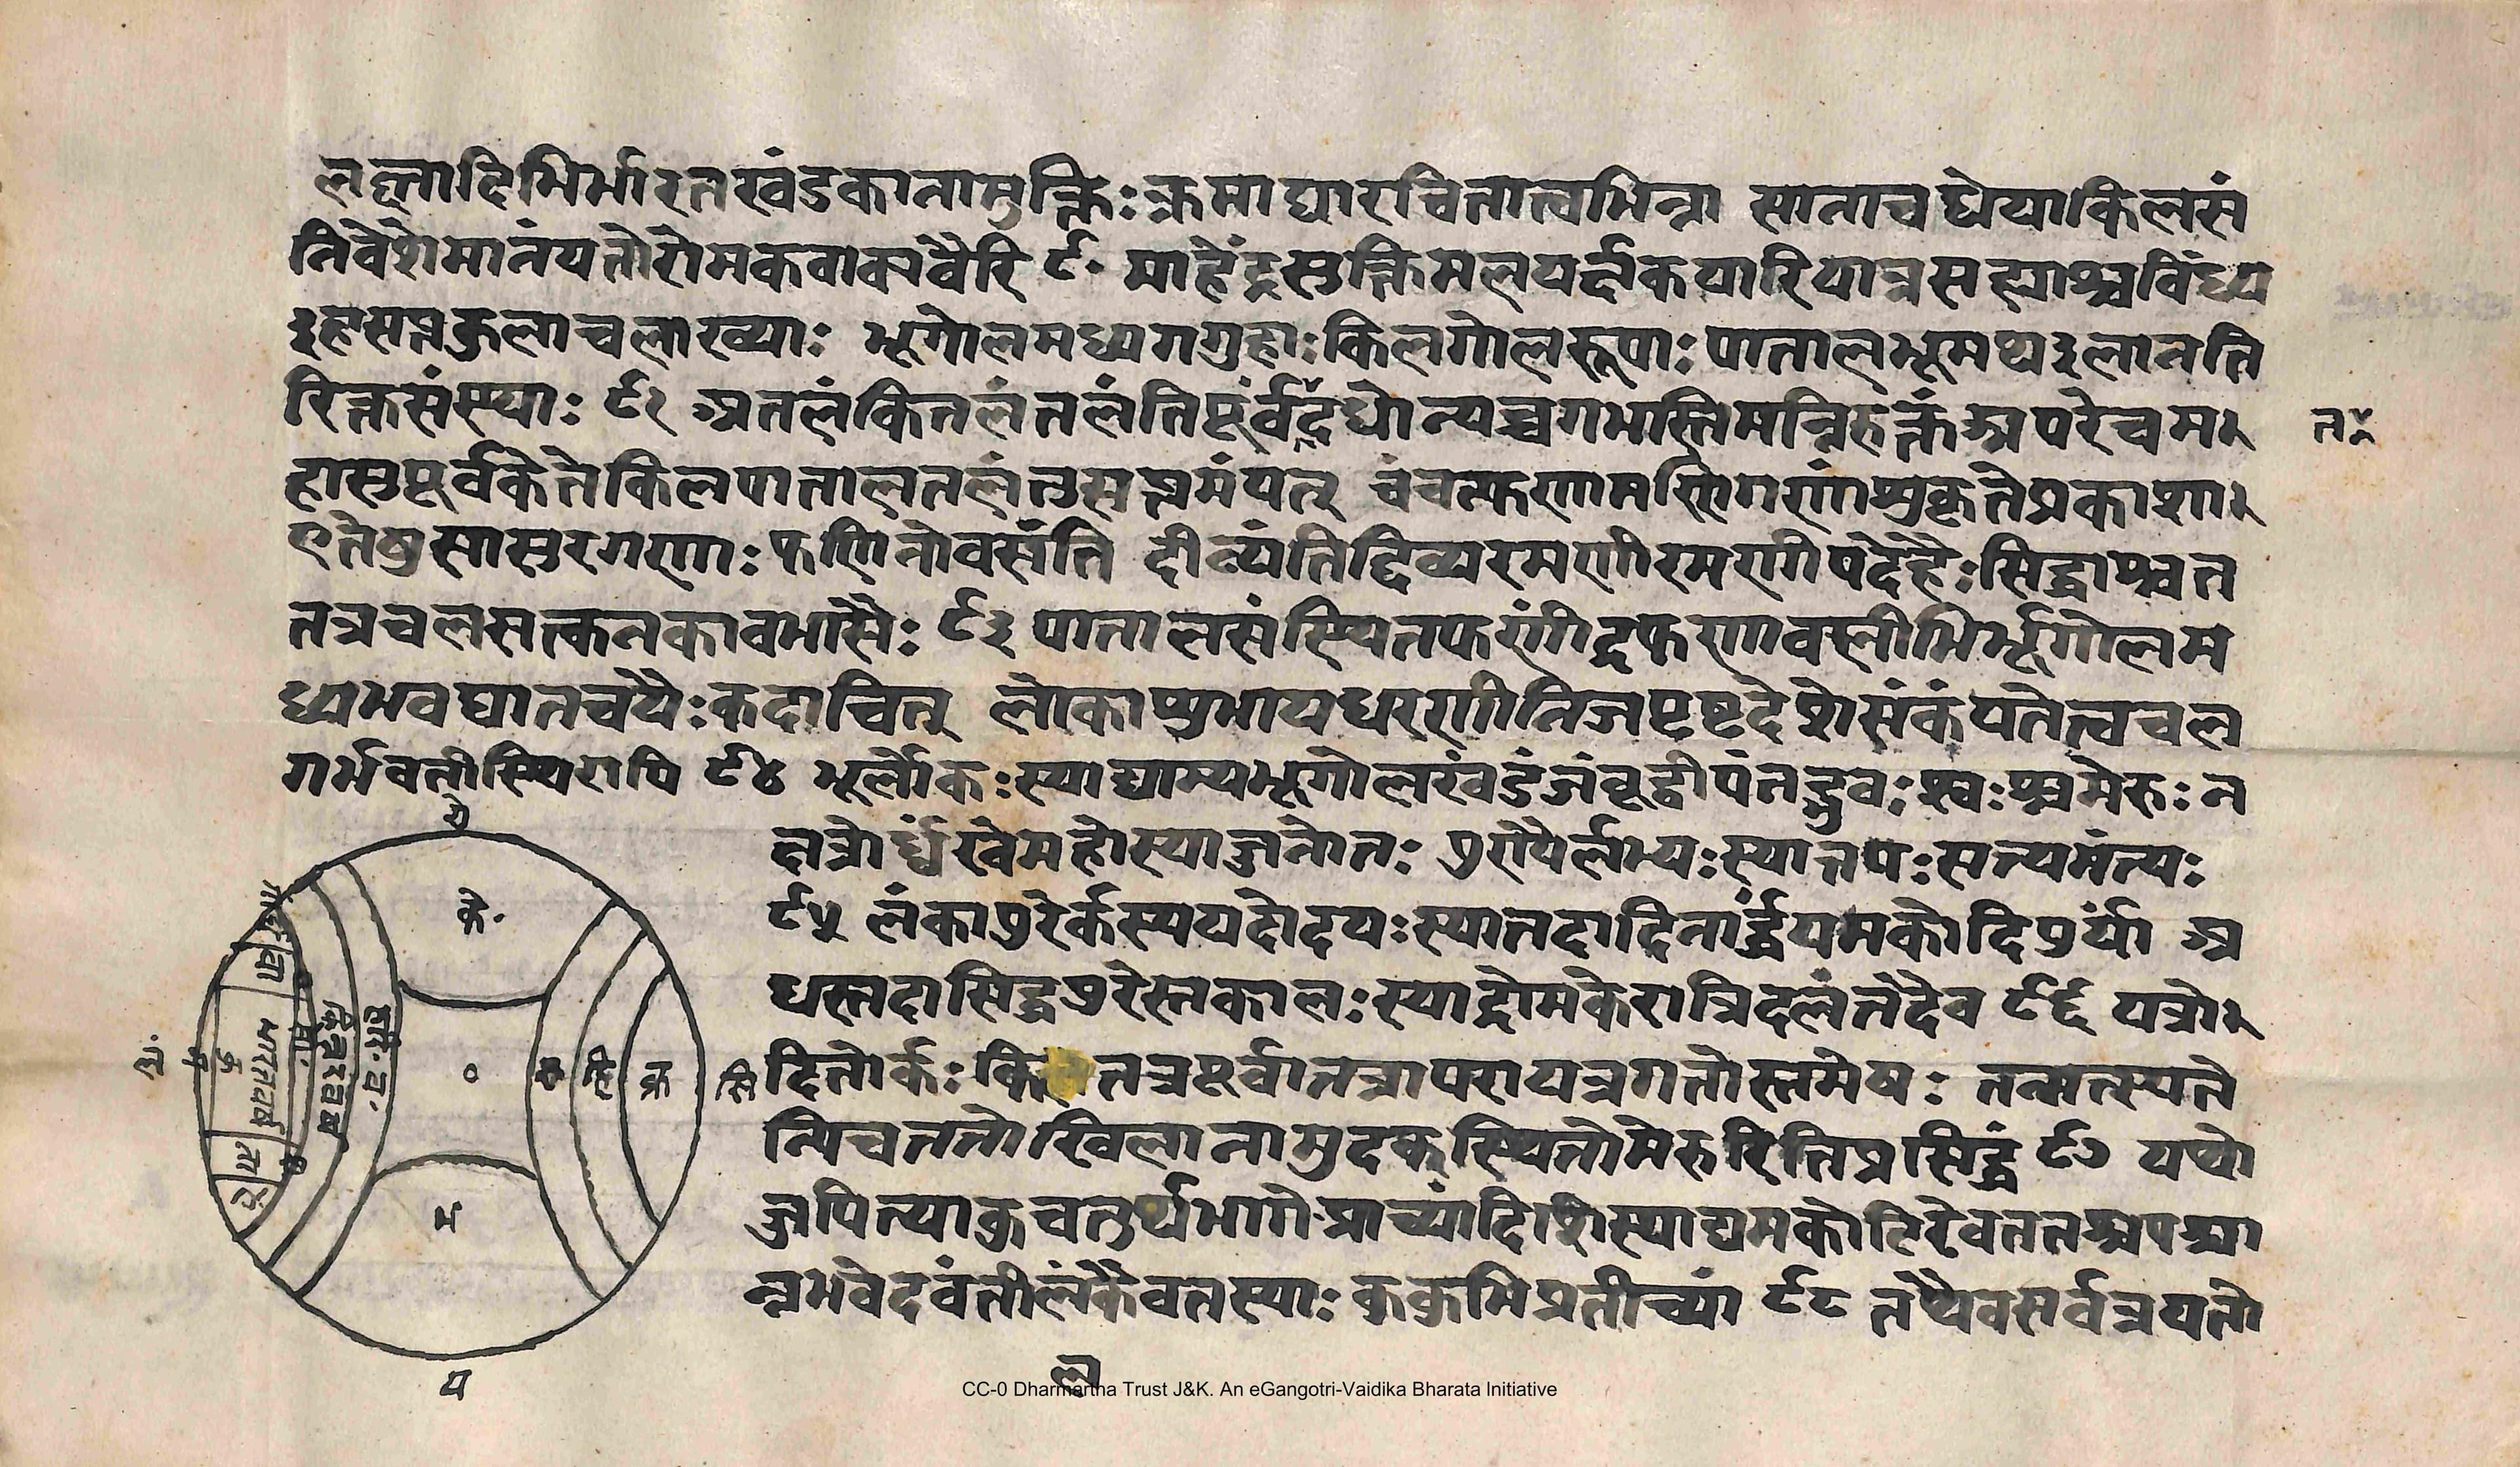 लह्लादिभिर्भारतखंडकानामुक्तिः क्रमाद्यारचितात्वभिन्ना सानावधेयाकिलसं
निवेशेमानंयतोरोमकवाक्यवैरि ९० माहेंद्रसुक्तिमलयर्दाकपारियात्रसह्याश्चविंध्य
इहसप्तकुलाचलाख्याः भूगोलमध्यगगुहाः किलगोलरूपाः पातालभूमथइलानति
रिक्तसंस्थाः ९२ अतलंवितलंतलंति पूर्वदधोन्यच्चगभस्तिमन्निरुक्तं अपरेचम
हासुपूर्वकेतेकिलपातालतलंतुसप्तमंयत् चंचत्फणामणिगणांशुकृतप्रकाशा
एतेषुसासुरगणाः फणिनोवसंति दीव्यंतिदिव्यरमणीरमणीयदेहैः सिद्धाश्चत
तत्रचलसत्कनकावभासैः ९३ पातालसंस्थितफणींद्रफणावस्तीभिर्भूगोलम
ध्यभवघातचयैः कदाचित् लोकाशुभायधरणीनिजपृष्टदेशेसंकंपतेत्वचल
गर्भवतीस्थिरापि ९४ भूर्लोकः स्याद्याम्यभूगोलखंडंजंबूद्वीपंतद्भुवः श्वः श्चमेरुः न
तत्रोर्ध्वंखेमहोस्याज्जनोतः पुरोपैर्लभ्यः स्यात्तपः सत्यमंत्यः
९५ लंकापुरेर्कस्ययदोदयः स्यातदादिनार्द्धंयमकोटिपुर्यां अ
धस्तदासिद्धपुरेस्तकालः स्याद्रोमकेरात्रिदलंतदैव ९६ यत्रो
दितोर्कः किलतत्रपूर्वातत्रापरायत्रगतोस्तमेषः तन्मत्स्यते
न्यिचततोखिलानामुदकस्थितोमेरुरितिप्रसिद्धं ९७ यथो
ज्जयिन्याकुचतुर्थभागे प्राच्यांदिशिस्याद्यमकोटिरेवततश्चपश्चा
न्नभवेदवंतीलंकैवतस्याः ककुभिप्रतीच्यां ९८ तथैवसर्वत्रयतो
ल
के०
भ
०
भारतवर्ष
किन्नरवर्ष
हरि० व०
सि
प
CC-0 Dharmartha Trust J&K. An eGangotri-Vaidika Bharata Initiative